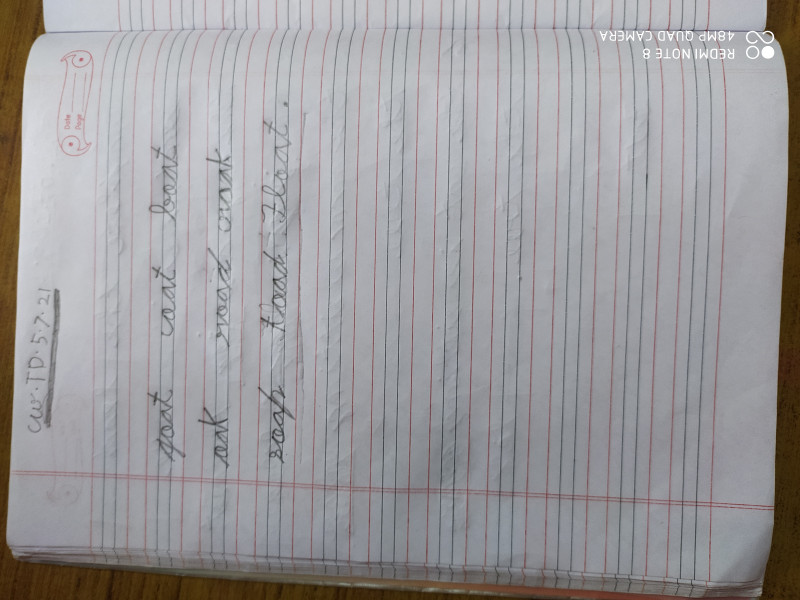 CW. TD. 5.7.21
Date
Page
goat coat boat
oak road oak
soap load float.
REDMI NOTE 8
48MP QUAD CAMERA